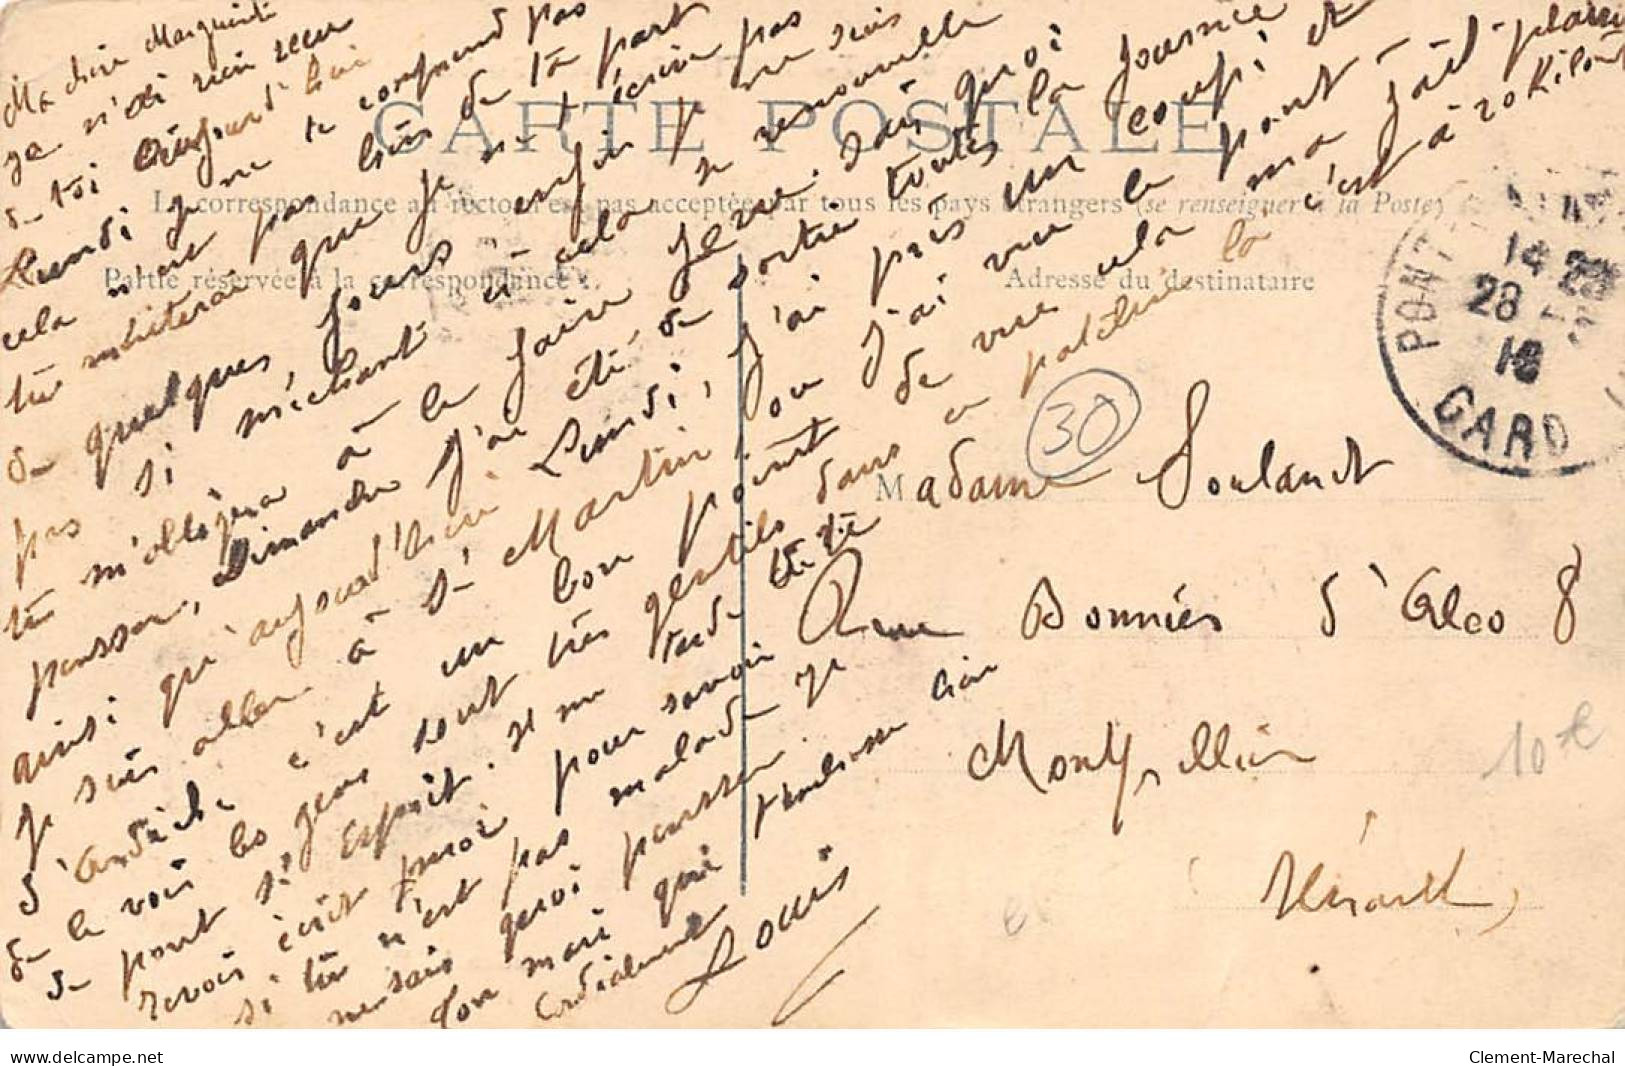 Ma chère Marguerite
je n'ai rien reçu
de toi Aujourd'hui
Lundi je ne te comprend pas
cela n'est pas bien de ta part
tu mériterai que je n't'écrive pas
de quelques jours enfin je ne suis
pas si méchant à cela je renouvelle
tu m'obligera à le faire
penser, Dimanche j'ai été de sortie toutes la journée
ainsi qu'aujourd'hui Lundi, j'ai pris un coupi et
je suis aller à St Martin ou j'ai vue le pont
d'Ardèche c'est un bon point de vue cela ma fait plaisir
de le voir les gens sont très gentils dans la c'est à 20 Kilom
de pont St Esprit. il me tarde de te
revoir écrit moi pour savoir
si tu n'est pas malade je
ne sais quoi penser
Ton mari qui t'embrasse bien
Cordialement
Louis
CARTE POSTALE
La correspondance au recto n'est pas acceptée par tous les pays étrangers (se renseigner à la Poste)
Partie réservée à la correspondance
Adresse du destinataire
PONT
14
28
16
GARD
30
Madame Soulanet
Rue Bonniés d'Alco 8
Montpellier
Hérault
10 €
www.delcampe.net
Clement-Marechal